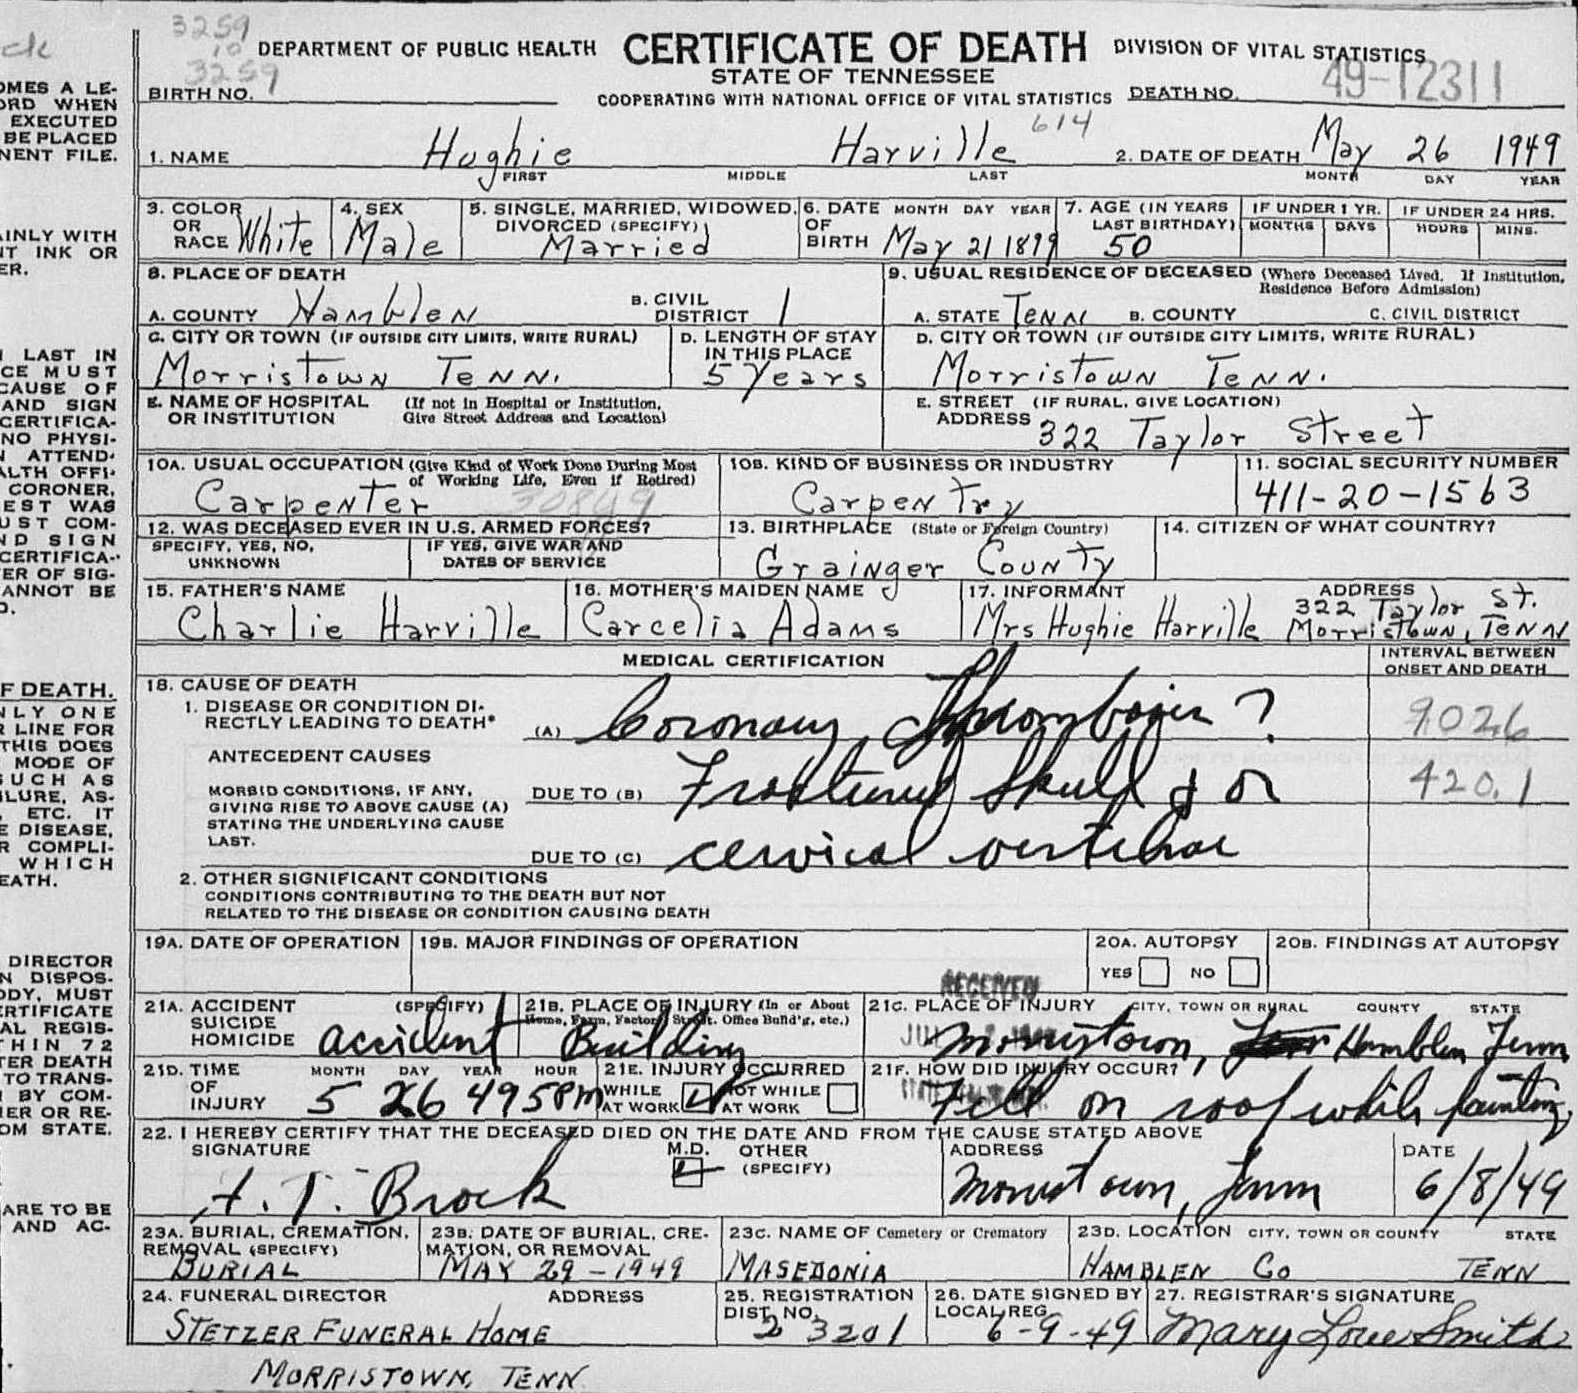 3259
10
3259
ck
DEPARTMENT OF PUBLIC HEALTH CERTIFICATE OF DEATH DIVISION OF VITAL STATISTICS
STATE OF TENNESSEE
49-12311
BIRTH NO. COOPERATING WITH NATIONAL OFFICE OF VITAL STATISTICS DEATH NO.
614
1. NAME Hughie Harville 2. DATE OF DEATH May 26 1949
FIRST MIDDLE LAST MONTH DAY YEAR
3. COLOR OR RACE White 4. SEX Male 5. SINGLE, MARRIED, WIDOWED, DIVORCED (SPECIFY) Married 6. DATE OF BIRTH MONTH DAY YEAR May 21 1899 7. AGE (IN YEARS LAST BIRTHDAY) 50 IF UNDER 1 YR. MONTHS DAYS IF UNDER 24 HRS. HOURS MINS.
8. PLACE OF DEATH
A. COUNTY Hamblen B. CIVIL DISTRICT 1
9. USUAL RESIDENCE OF DECEASED (Where Deceased Lived. If Institution, Residence Before Admission)
A. STATE Tenn B. COUNTY C. CIVIL DISTRICT
C. CITY OR TOWN (IF OUTSIDE CITY LIMITS, WRITE RURAL) Morristown Tenn.
D. LENGTH OF STAY IN THIS PLACE 5 Years
D. CITY OR TOWN (IF OUTSIDE CITY LIMITS, WRITE RURAL) Morristown Tenn.
E. NAME OF HOSPITAL OR INSTITUTION (If not in Hospital or Institution, Give Street Address and Location)
E. STREET ADDRESS (IF RURAL, GIVE LOCATION) 322 Taylor Street
10A. USUAL OCCUPATION (Give Kind of Work Done During Most of Working Life, Even if Retired) Carpenter 30849
10B. KIND OF BUSINESS OR INDUSTRY Carpentry
11. SOCIAL SECURITY NUMBER 411-20-1563
12. WAS DECEASED EVER IN U.S. ARMED FORCES?
SPECIFY, YES, NO, UNKNOWN IF YES, GIVE WAR AND DATES OF SERVICE
13. BIRTHPLACE (State or Foreign Country) Grainger County
14. CITIZEN OF WHAT COUNTRY?
15. FATHER'S NAME Charlie Harville
16. MOTHER'S MAIDEN NAME Carcelia Adams
17. INFORMANT Mrs Hughie Harville ADDRESS 322 Taylor St. Morristown, Tenn
MEDICAL CERTIFICATION
INTERVAL BETWEEN ONSET AND DEATH
18. CAUSE OF DEATH
1. DISEASE OR CONDITION DIRECTLY LEADING TO DEATH* (A) Coronary Thrombosis ? 902.6
ANTECEDENT CAUSES
MORBID CONDITIONS, IF ANY, GIVING RISE TO ABOVE CAUSE (A) STATING THE UNDERLYING CAUSE LAST.
DUE TO (B) Fractured Skull & or 420.1
DUE TO (C) cervical vertebrae
2. OTHER SIGNIFICANT CONDITIONS
CONDITIONS CONTRIBUTING TO THE DEATH BUT NOT
RELATED TO THE DISEASE OR CONDITION CAUSING DEATH
19A. DATE OF OPERATION 19B. MAJOR FINDINGS OF OPERATION 20A. AUTOPSY YES NO 20B. FINDINGS AT AUTOPSY
RECEIVED
21A. ACCIDENT SUICIDE HOMICIDE (SPECIFY) accident
21B. PLACE OF INJURY (In or About Home, Farm, Factory, Street, Office Build'g, etc.) Building
21C. PLACE OF INJURY CITY, TOWN OR RURAL COUNTY STATE Morristown, Hamblen Tenn
21D. TIME OF INJURY MONTH DAY YEAR HOUR 5 26 49 5 PM
21E. INJURY OCCURRED WHILE AT WORK NOT WHILE AT WORK
21F. HOW DID INJURY OCCUR? Fell on roof while painting,
22. I HEREBY CERTIFY THAT THE DECEASED DIED ON THE DATE AND FROM THE CAUSE STATED ABOVE
SIGNATURE M.D. OTHER (SPECIFY) ADDRESS DATE
T. Brock Morristown, Tenn 6/8/49
23A. BURIAL, CREMATION, REMOVAL (SPECIFY) BURIAL
23B. DATE OF BURIAL, CREMATION, OR REMOVAL MAY 29-1949
23C. NAME OF Cemetery or Crematory MASEDONIA
23D. LOCATION CITY, TOWN OR COUNTY STATE HAMBLEN CO TENN
24. FUNERAL DIRECTOR ADDRESS STETZER FUNERAL HOME
MORRISTOWN, TENN
25. REGISTRATION DIST. NO. 23201
26. DATE SIGNED BY LOCAL REG. 6-9-49
27. REGISTRAR'S SIGNATURE Mary Love Smith
OMES A LE-
ORD WHEN
EXECUTED
BE PLACED
NENT FILE.
AINLY WITH
NT INK OR
ER.
LAST IN
CE MUST
CAUSE OF
AND SIGN
CERTIFICA-
NO PHYSI-
N ATTEND-
ALTH OFFI-
CORONER,
EST WAS
UST COM-
ND SIGN
CERTIFICA-
ER OF SIG-
ANNOT BE
D.
F DEATH.
NLY ONE
R LINE FOR
THIS DOES
MODE OF
SUCH AS
ILURE, AS-
, ETC. IT
E DISEASE,
R COMPLI-
WHICH
EATH.
DIRECTOR
N DISPOS-
ODY, MUST
ERTIFICATE
AL REGIS-
THIN 72
TER DEATH
TO TRANS-
BY COM-
NER OR RE-
OM STATE.
ARE TO BE
AND AC-